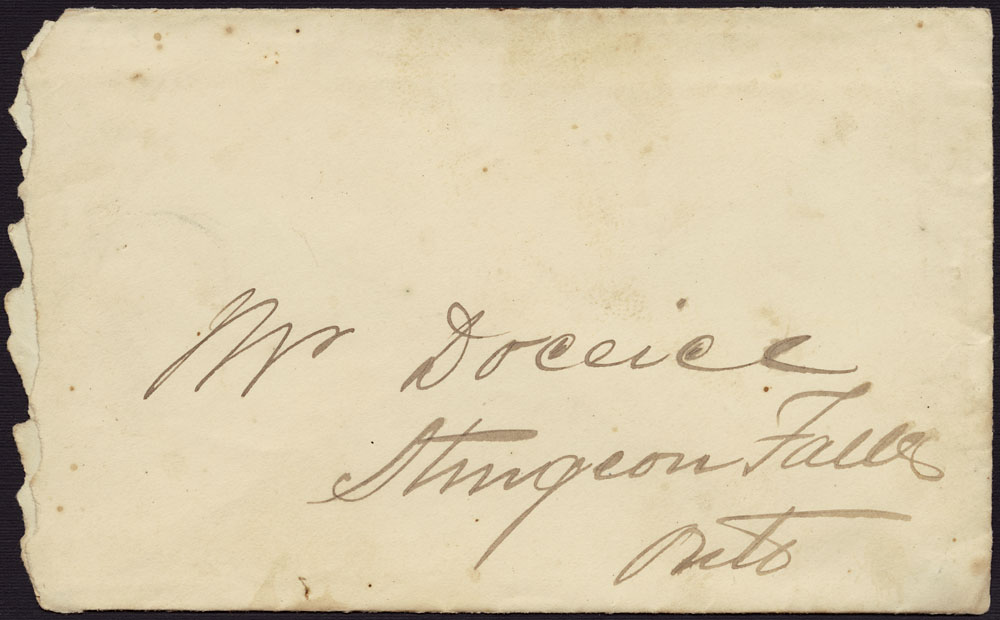 Mr Doceice
Sturgeon Falls
Onto